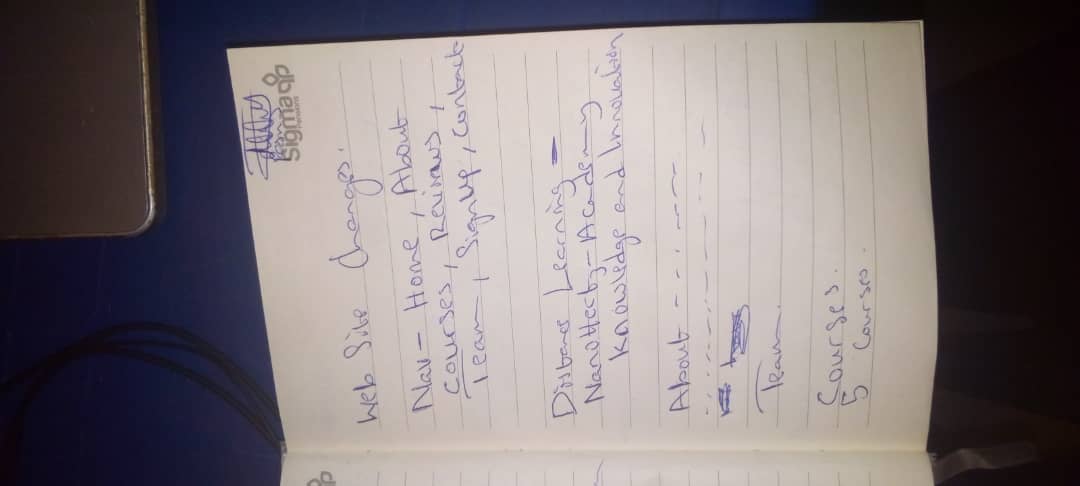 Sigma
Pensions
Web Site Changes.
Nav - Home, About
Courses, Reviews,
Team, SignUp, Contact
Distance Learning -
Academy
Knowledge and Innovation
About - - . - - -
Team.
Courses.
5 Courses.